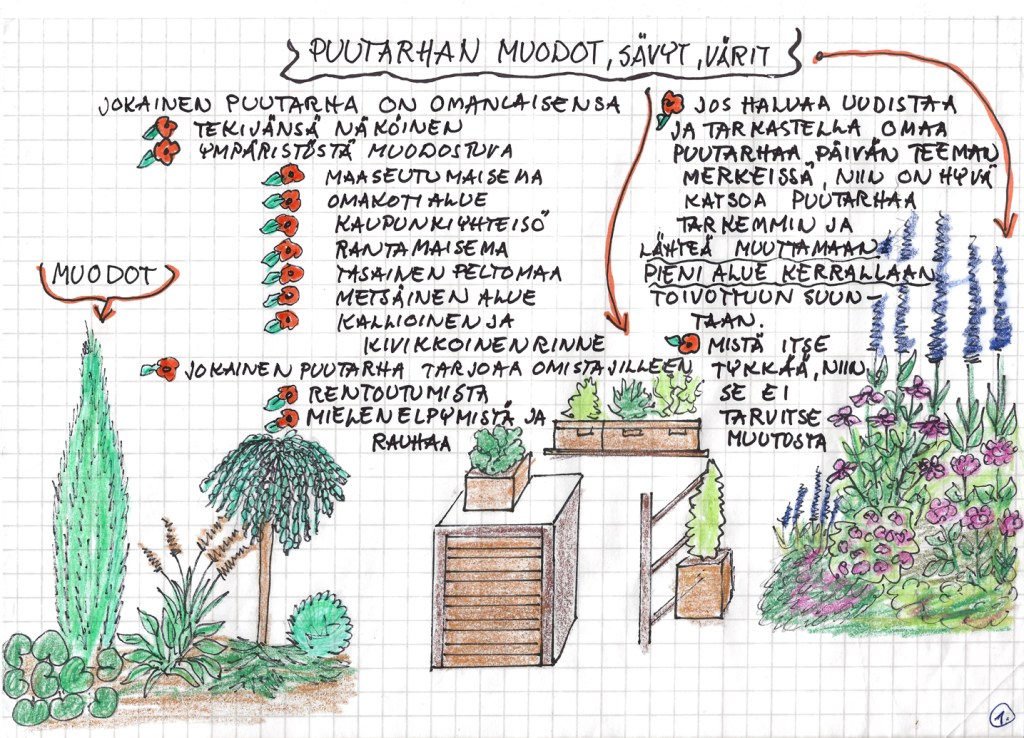 PUUTARHAN MUODOT, SÄVYT, VÄRIT
JOKAINEN PUUTARHA ON OMANLAISENSA
TEKIJÄNSÄ NÄKÖINEN
YMPÄRISTÖSTÄ MUODOSTUVA
MAASEUTUMAISEMA
OMAKOTIALUE
KAUPUNKIYHTEISÖ
RANTAMAISEMA
TASAINEN PELTOMAA
METSÄINEN ALUE
KALLIOINEN JA
KIVIKKOINEN RINNE
JOKAINEN PUUTARHA TARJOAA OMISTAJILLEEN
RENTOUTUMISTA
MIELEN ELPYMISTÄ JA
RAUHAA
JOS HALUAA UUDISTAA
JA TARKASTELLA OMAA
PUUTARHAA PÄIVÄN TEEMAN
MERKEISSÄ, NIIN ON HYVÄ
KATSOA PUUTARHAA
TARKEMMIN JA
LÄHTEÄ MUUTTAMAAN
PIENI ALUE KERRALLAAN
TOIVOTTUUN SUUN-
TAAN.
MISTÄ ITSE
TYKKÄÄ, NIIN
SE EI
TARVITSE
MUUTOSTA
MUODOT
1.